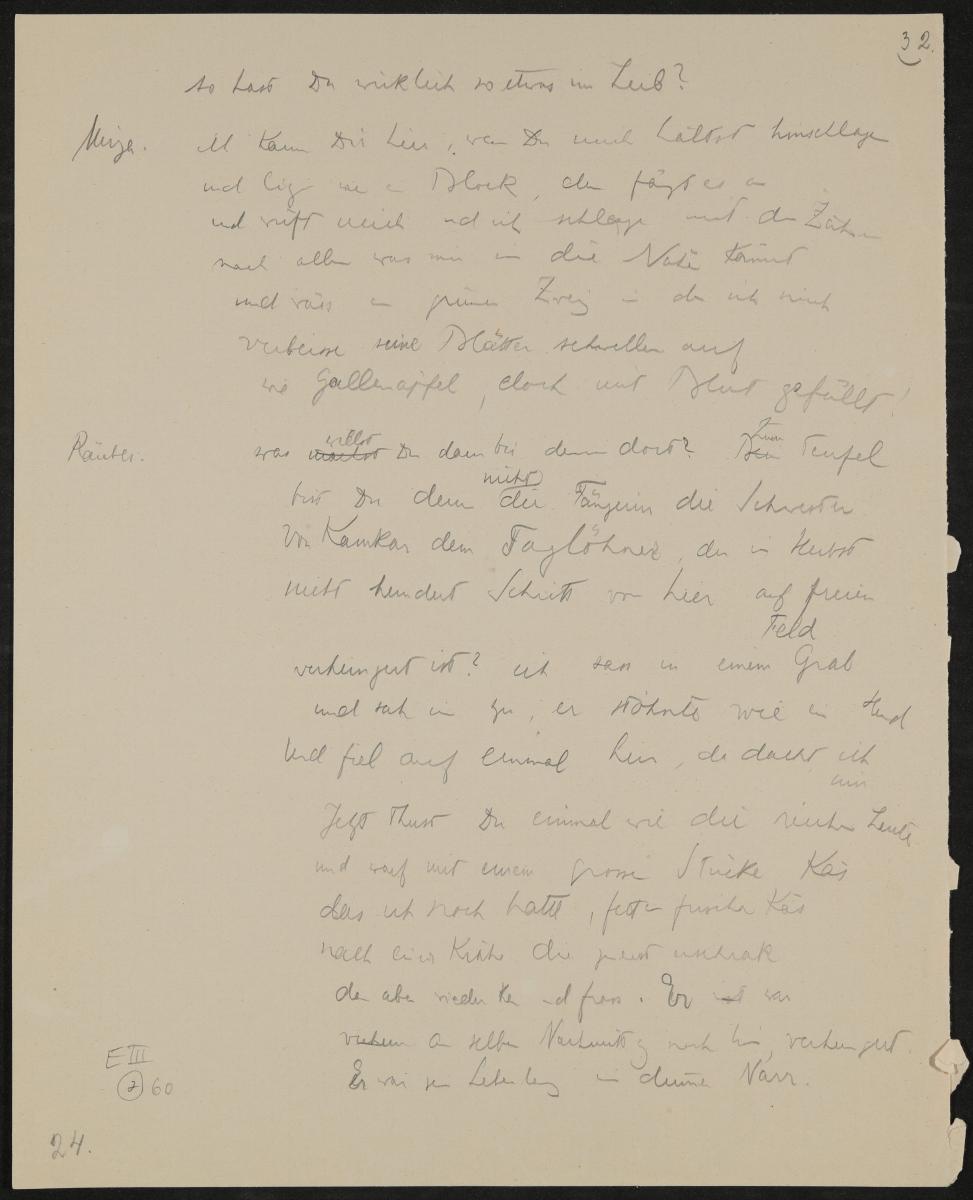 32.
so hast Du wirklich so etwas im Leib?
Mirza. ich kann Dir hier, wen Du mich hältst hinschlagen
und lieg wie ein Block, dan fängt es an
und wirft mich und ich schlage mit den Zähnen
nach allem was mir in die Nähe kommt
und wärs ein grüner Zweig in den ich mich
verbeisse seine Blätter schwellen auf
wie Galläpfel, doch mit Blut gefüllt!
Räuber. was machst willst Du dann bei denen dort? Den Zum Teufel
bist Du denn nicht die Tängerin die Schwester
Von Kamkar dem Taglöhner, der im Herbst
nicht hundert Schritt von hier auf freien
Feld
verhungert ist? ich sass in einem Grab
und sah im zu, er stöhnte wie ein Hund
Und fiel auf einmal hin, da dacht ich
mir
Jetzt thust Du einmal wie die reichen Leute
und warf mit einem grossen Stücke Käs
das ich noch hatte, fetten frischen Käs
nach einer Krähe die zuerst erschrak
dan aber wieder kam und frass. Er ist war
an selben Nachmittag noch hin, verhungert.
Er war sein Lebenlang ein dummer Narr.
E III
7 60
24.